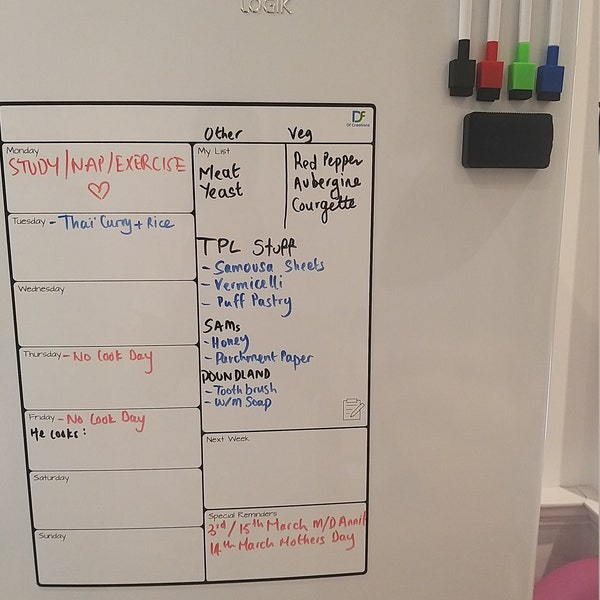 LOGIK
DF
DF Creations
Other Veg
Monday
STUDY/NAP/EXERCISE
Tuesday - Thai Curry + Rice
Wednesday
Thursday - No Cook Day
Friday - No Cook Day
He Cooks:
Saturday
Sunday
My List
Meat
Yeast
Red Pepper
Aubergine
Courgette
TPL Stuff
- Samousa Sheets
- Vermicelli
- Puff Pastry
SAMs
- Honey
- Parchment Paper
POUNDLAND
- Toothbrush
- W/M Soap
Next Week
Special Reminders
3rd/15th March M/D Anni
14th March Mothers Day